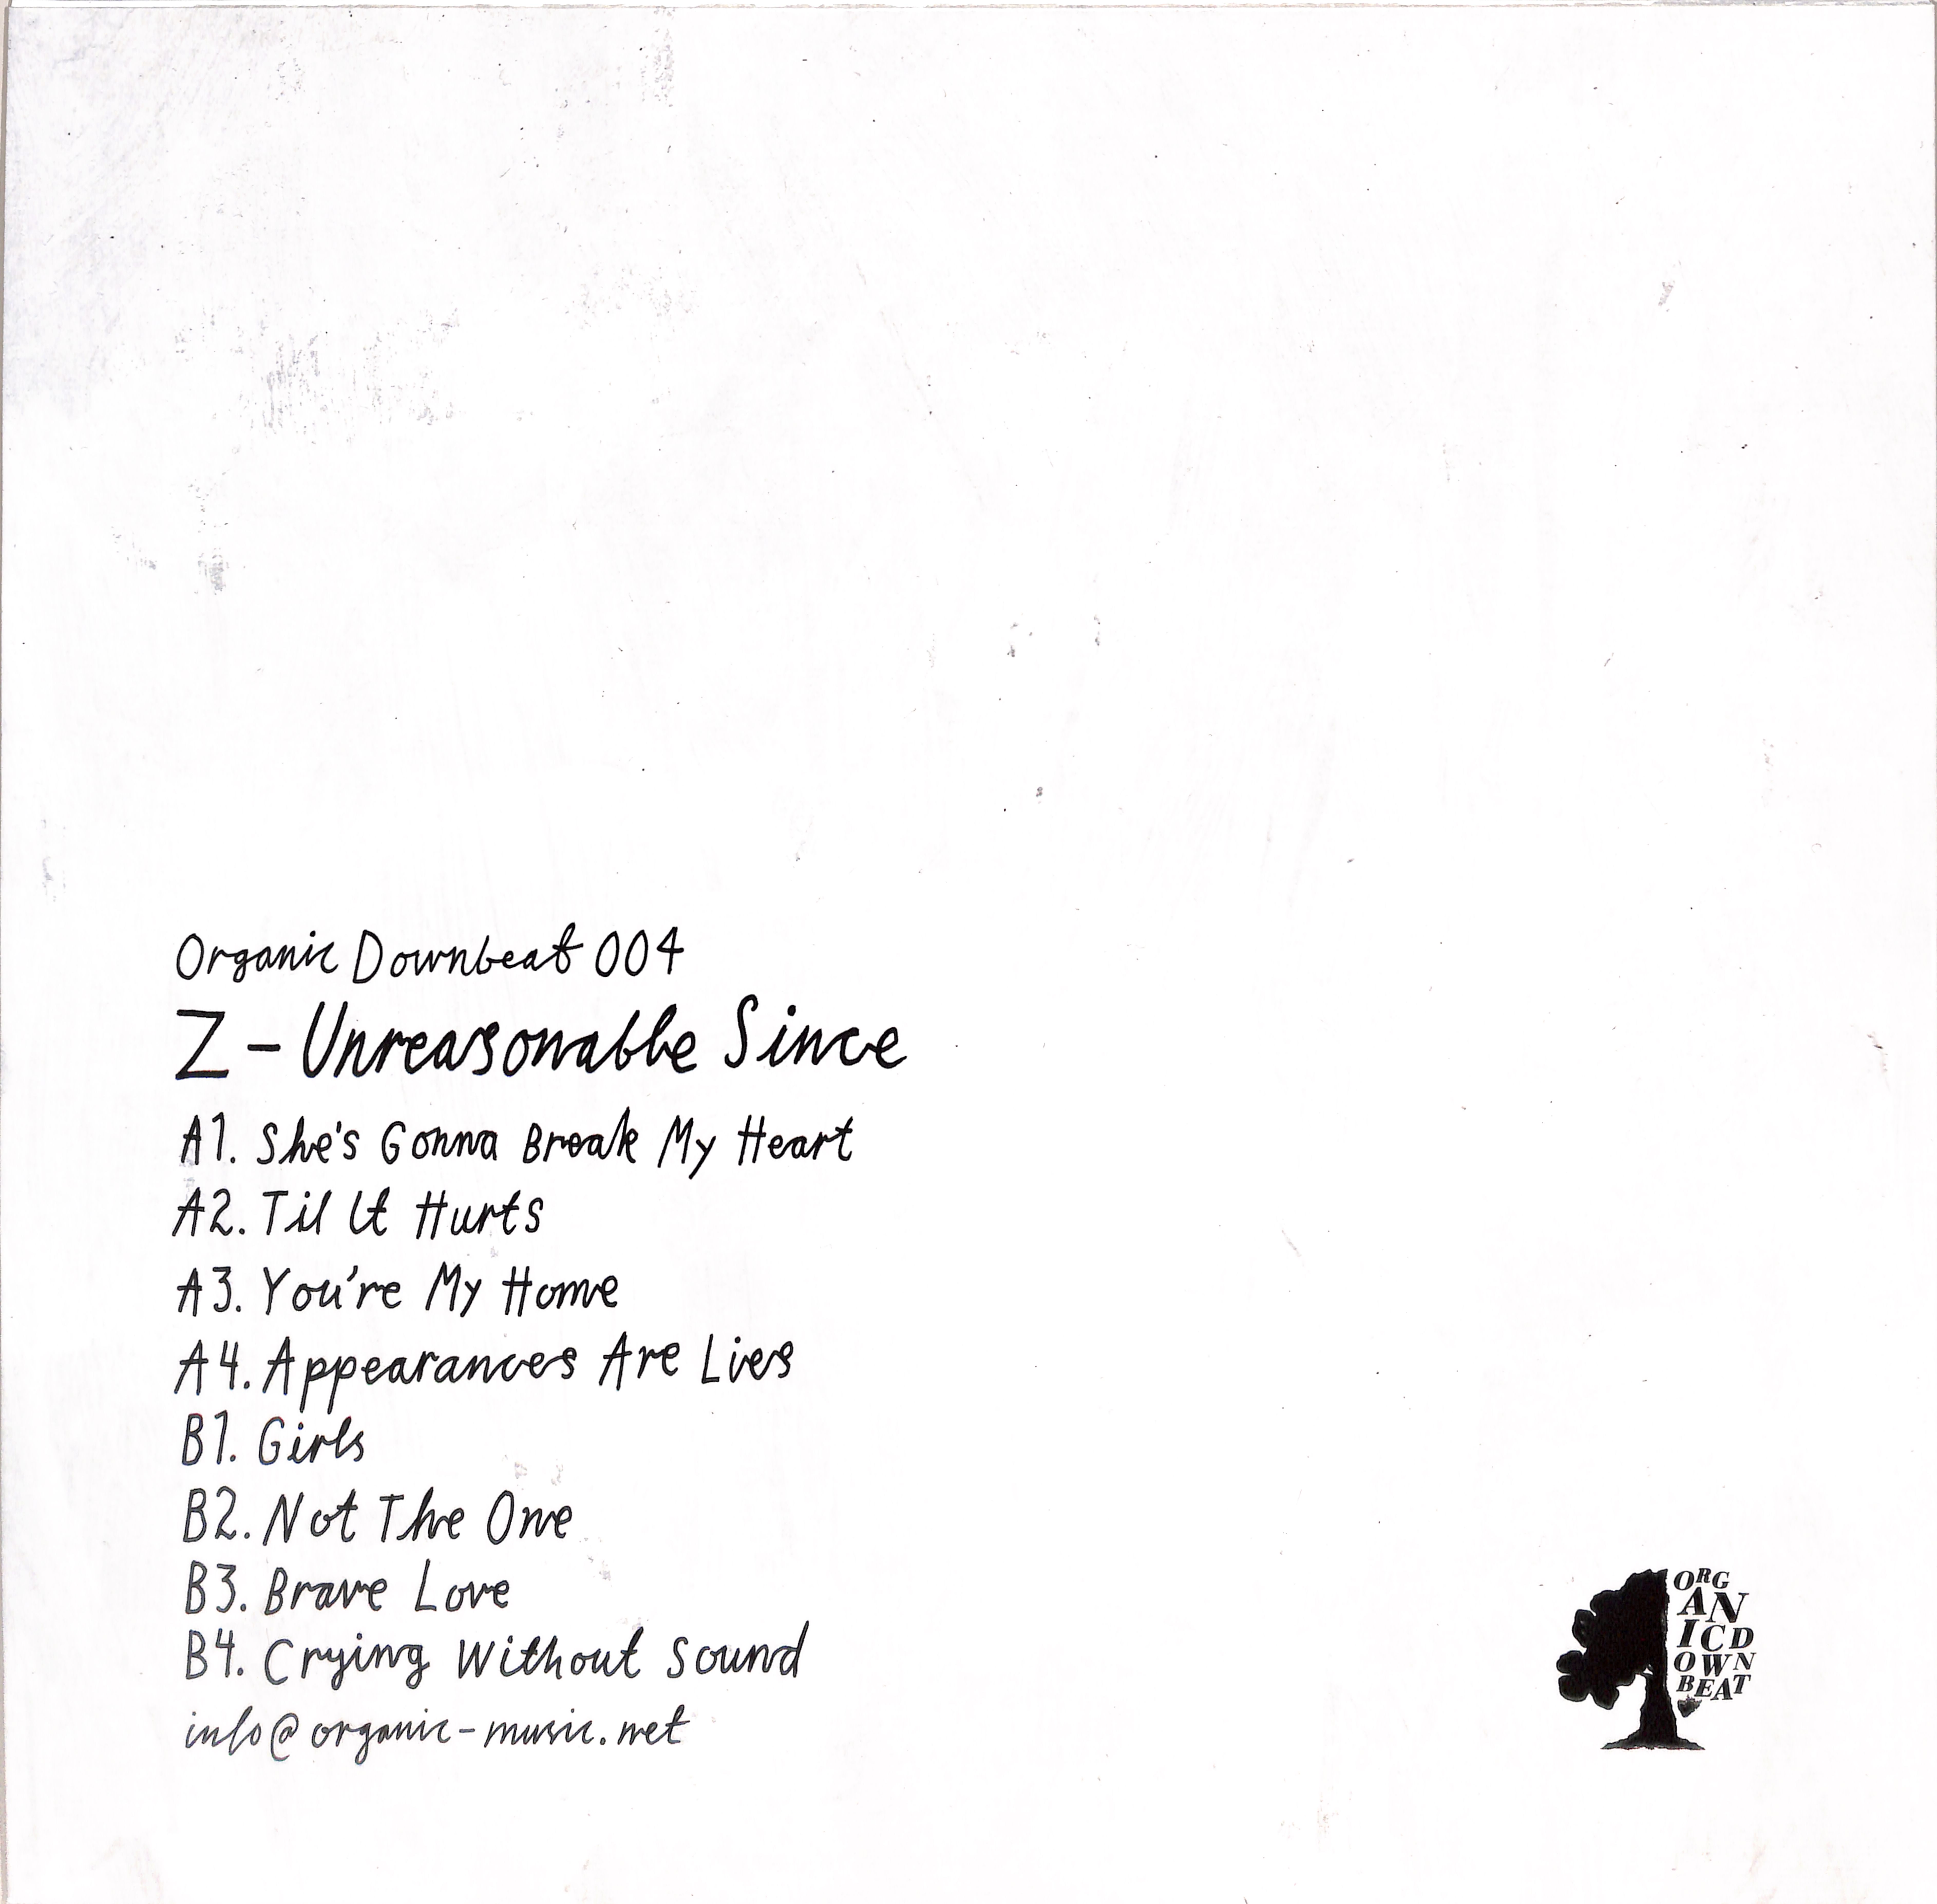 Organic Downbeat 004
Z - Unreasonable Since
A1. She's Gonna Break My Heart
A2. Til It Hurts
A3. You're My Home
A4. Appearances Are Lies
B1. Girls
B2. Not The One
B3. Brave Love
B4. Crying Without Sound
info@organic-music.net
ORG
AN
ICD
OWN
BEAT